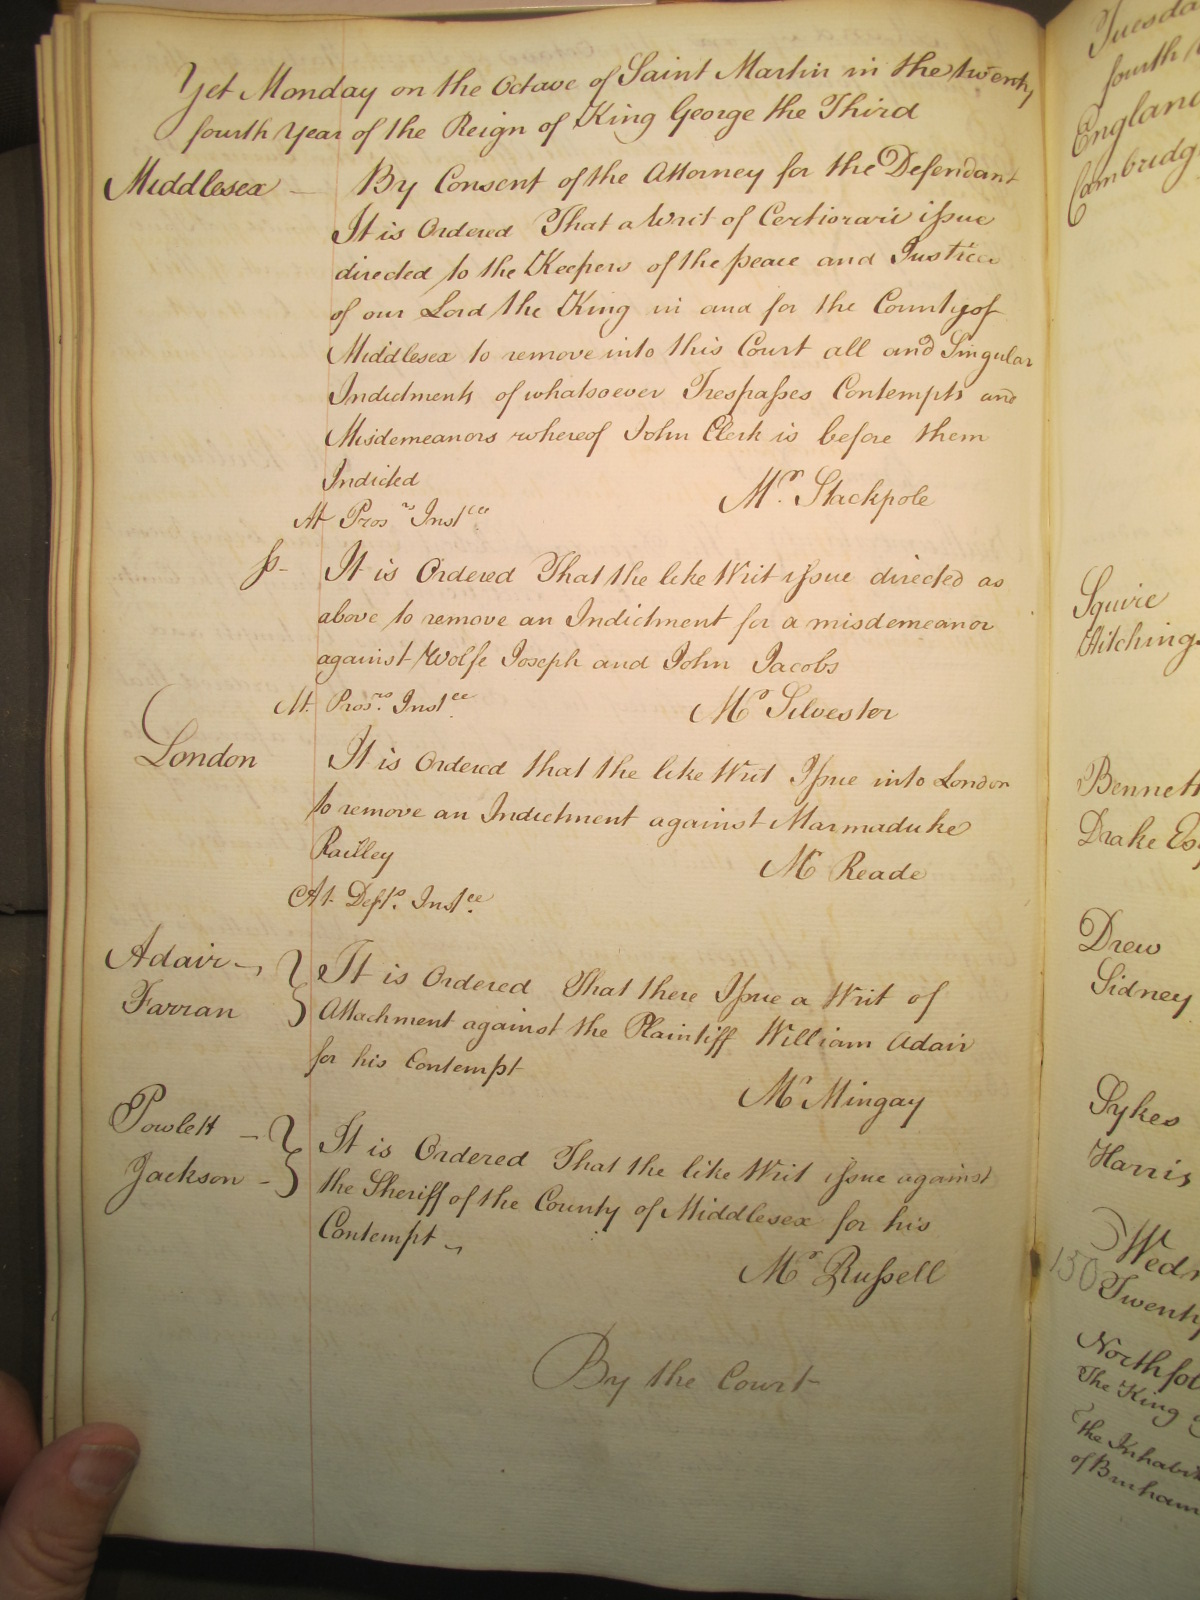 Yet Monday on the Octave of Saint Martin in the twenty
fourth Year of the Reign of King George the Third
Middlesex — By Consent of the Attorney for the Defendant
It is Ordered That a Writ of Certiorari issue
directed to the Keepers of the peace and Justices
of our Lord the King in and for the County of
Middlesex to remove into this Court all and Singular
Indictments of whatsoever Trespasses Contempts and
Misdemeanors whereof John Clerk is before them
Indicted
Mr. Stackpole
At Pros.rs Inst.ce
ss- It is Ordered That the like Writ issue directed as
above to remove an Indictment for a misdemeanor
against Wolfe Joseph and John Jacobs
At. Pros.rs Inst.ce
Mr Silvester
London It is Ordered that the like Writ Issue into London
to remove an Indictment against Marmaduke
Railley
Mr Reade
At. Deft.s Inst.ce
Adair
Farran
It is Ordered That there Issue a Writ of
Attachment against the Plaintiff William Adair
for his Contempt
Mr Mingay
Powlett —
Jackson -
It is Ordered That the like Writ issue against
the Sheriff of the County of Middlesex for his
Contempt
Mr Russell
By the Court
Tuesda
fourth
England
Cambridg
Squire
Hitchings
Bennett
Drake Es
Drew
Sidney
Sykes
Harris
150
Wedn
Twenty
Northfol
The King
the Inhabit
of Burham